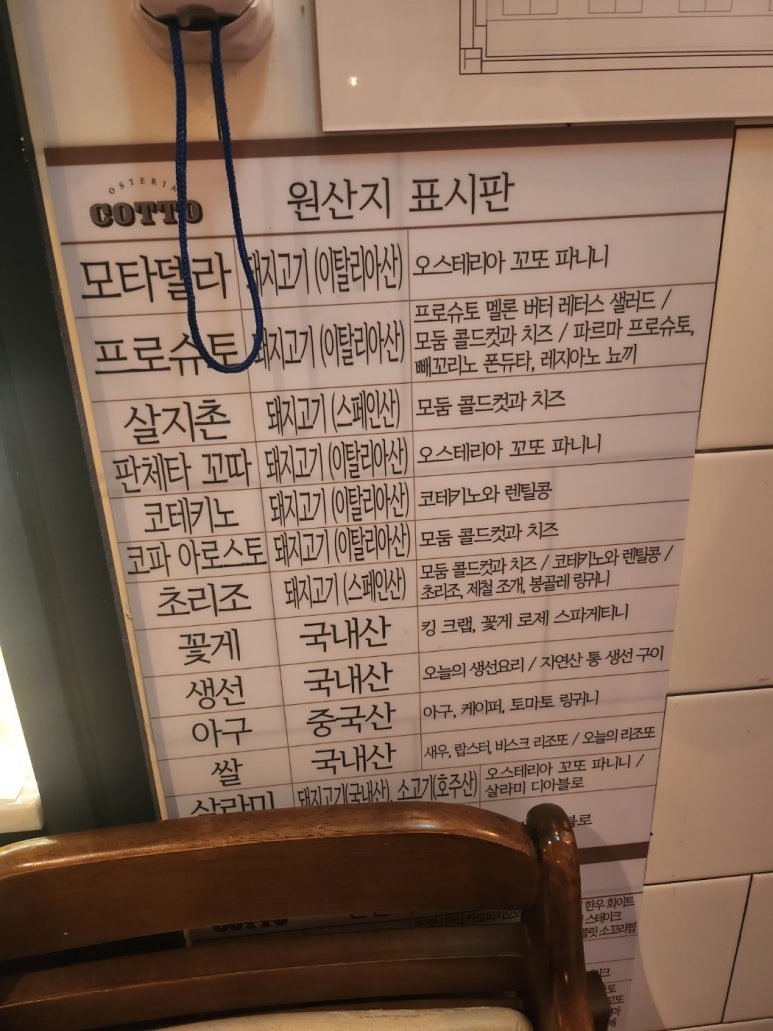 OSTERIA
COTTO
원산지 표시판
모타델라 돼지고기 (이탈리아산) 오스테리아 꼬또 파니니
프로슈토 돼지고기 (이탈리아산) 프로슈토 멜론 버터 레터스 샐러드 /
모둠 콜드컷과 치즈 / 파르마 프로슈토,
빼꼬리노 폰듀타, 레지아노 뇨끼
살지촌 돼지고기 (스페인산) 모둠 콜드컷과 치즈
판체타 꼬따 돼지고기 (이탈리아산) 오스테리아 꼬또 파니니
코테키노 돼지고기 (이탈리아산) 코테키노와 렌틸콩
코파 아로스토 돼지고기 (이탈리아산) 모둠 콜드컷과 치즈
초리조 돼지고기 (스페인산) 모둠 콜드컷과 치즈 / 코테키노와 렌틸콩 /
초리조, 제철 조개, 봉골레 링귀니
꽃게 국내산 킹 크랩, 꽃게 로제 스파게티니
생선 국내산 오늘의 생선요리 / 자연산 통 생선 구이
아구 중국산 아구, 케이퍼, 토마토 링귀니
쌀 국내산 새우, 랍스터, 비스크 리조또 / 오늘의 리조또
살라미 돼지고기(국내산), 소고기(호주산) 오스테리아 꼬또 파니니 /
살라미 디아블로
블로
한우 화이트
COTTO
스테이크
소꼬리찜